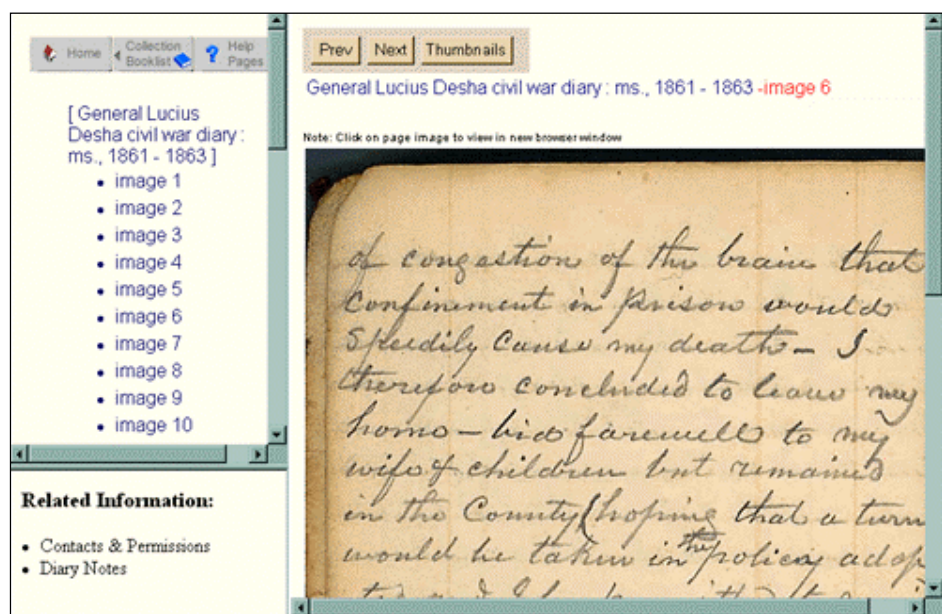 Home
Collection
Booklist
Help
Pages
[ General Lucius
Desha civil war diary :
ms., 1861 - 1863 ]
• image 1
• image 2
• image 3
• image 4
• image 5
• image 6
• image 7
• image 8
• image 9
• image 10
Related Information:
• Contacts & Permissions
• Diary Notes
Prev Next Thumbnails
General Lucius Desha civil war diary : ms., 1861 - 1863 -image 6
Note: Click on page image to view in new browser window
of congestion of the brain that
confinement in prison would
speedily cause my death – I
therefore concluded to leave my
home – bid farewell to my
wife & children but remained
in the County (hoping that a turn
would be taken in the policy adop